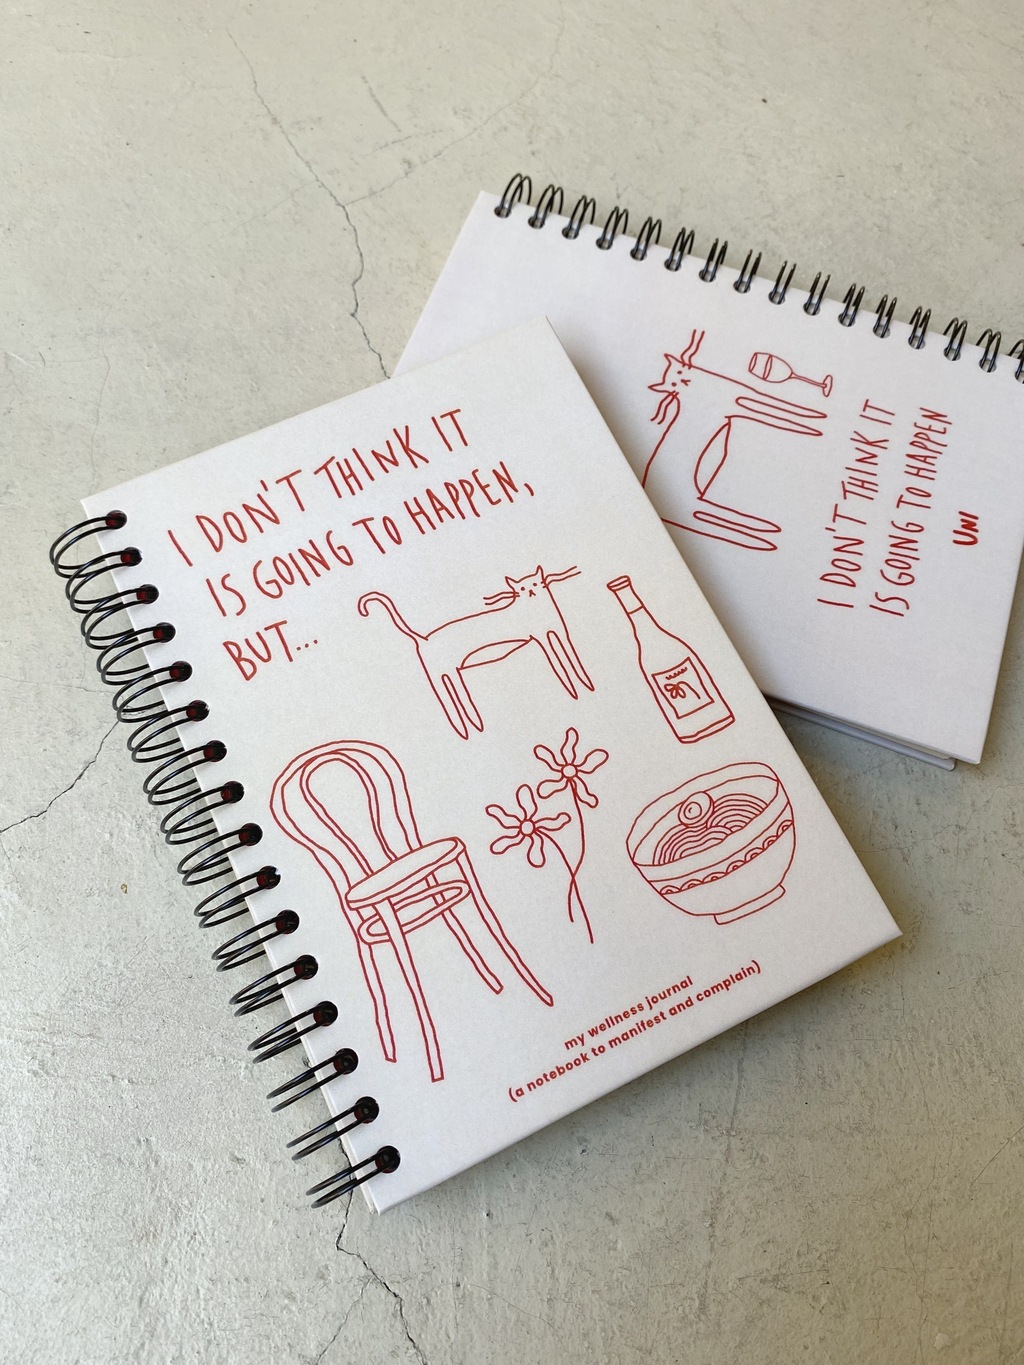 I DON'T THINK IT
IS GOING TO HAPPEN,
BUT...
my wellness journal
(a notebook to manifest and complain)
I DON'T THINK IT
IS GOING TO HAPPEN
UNI